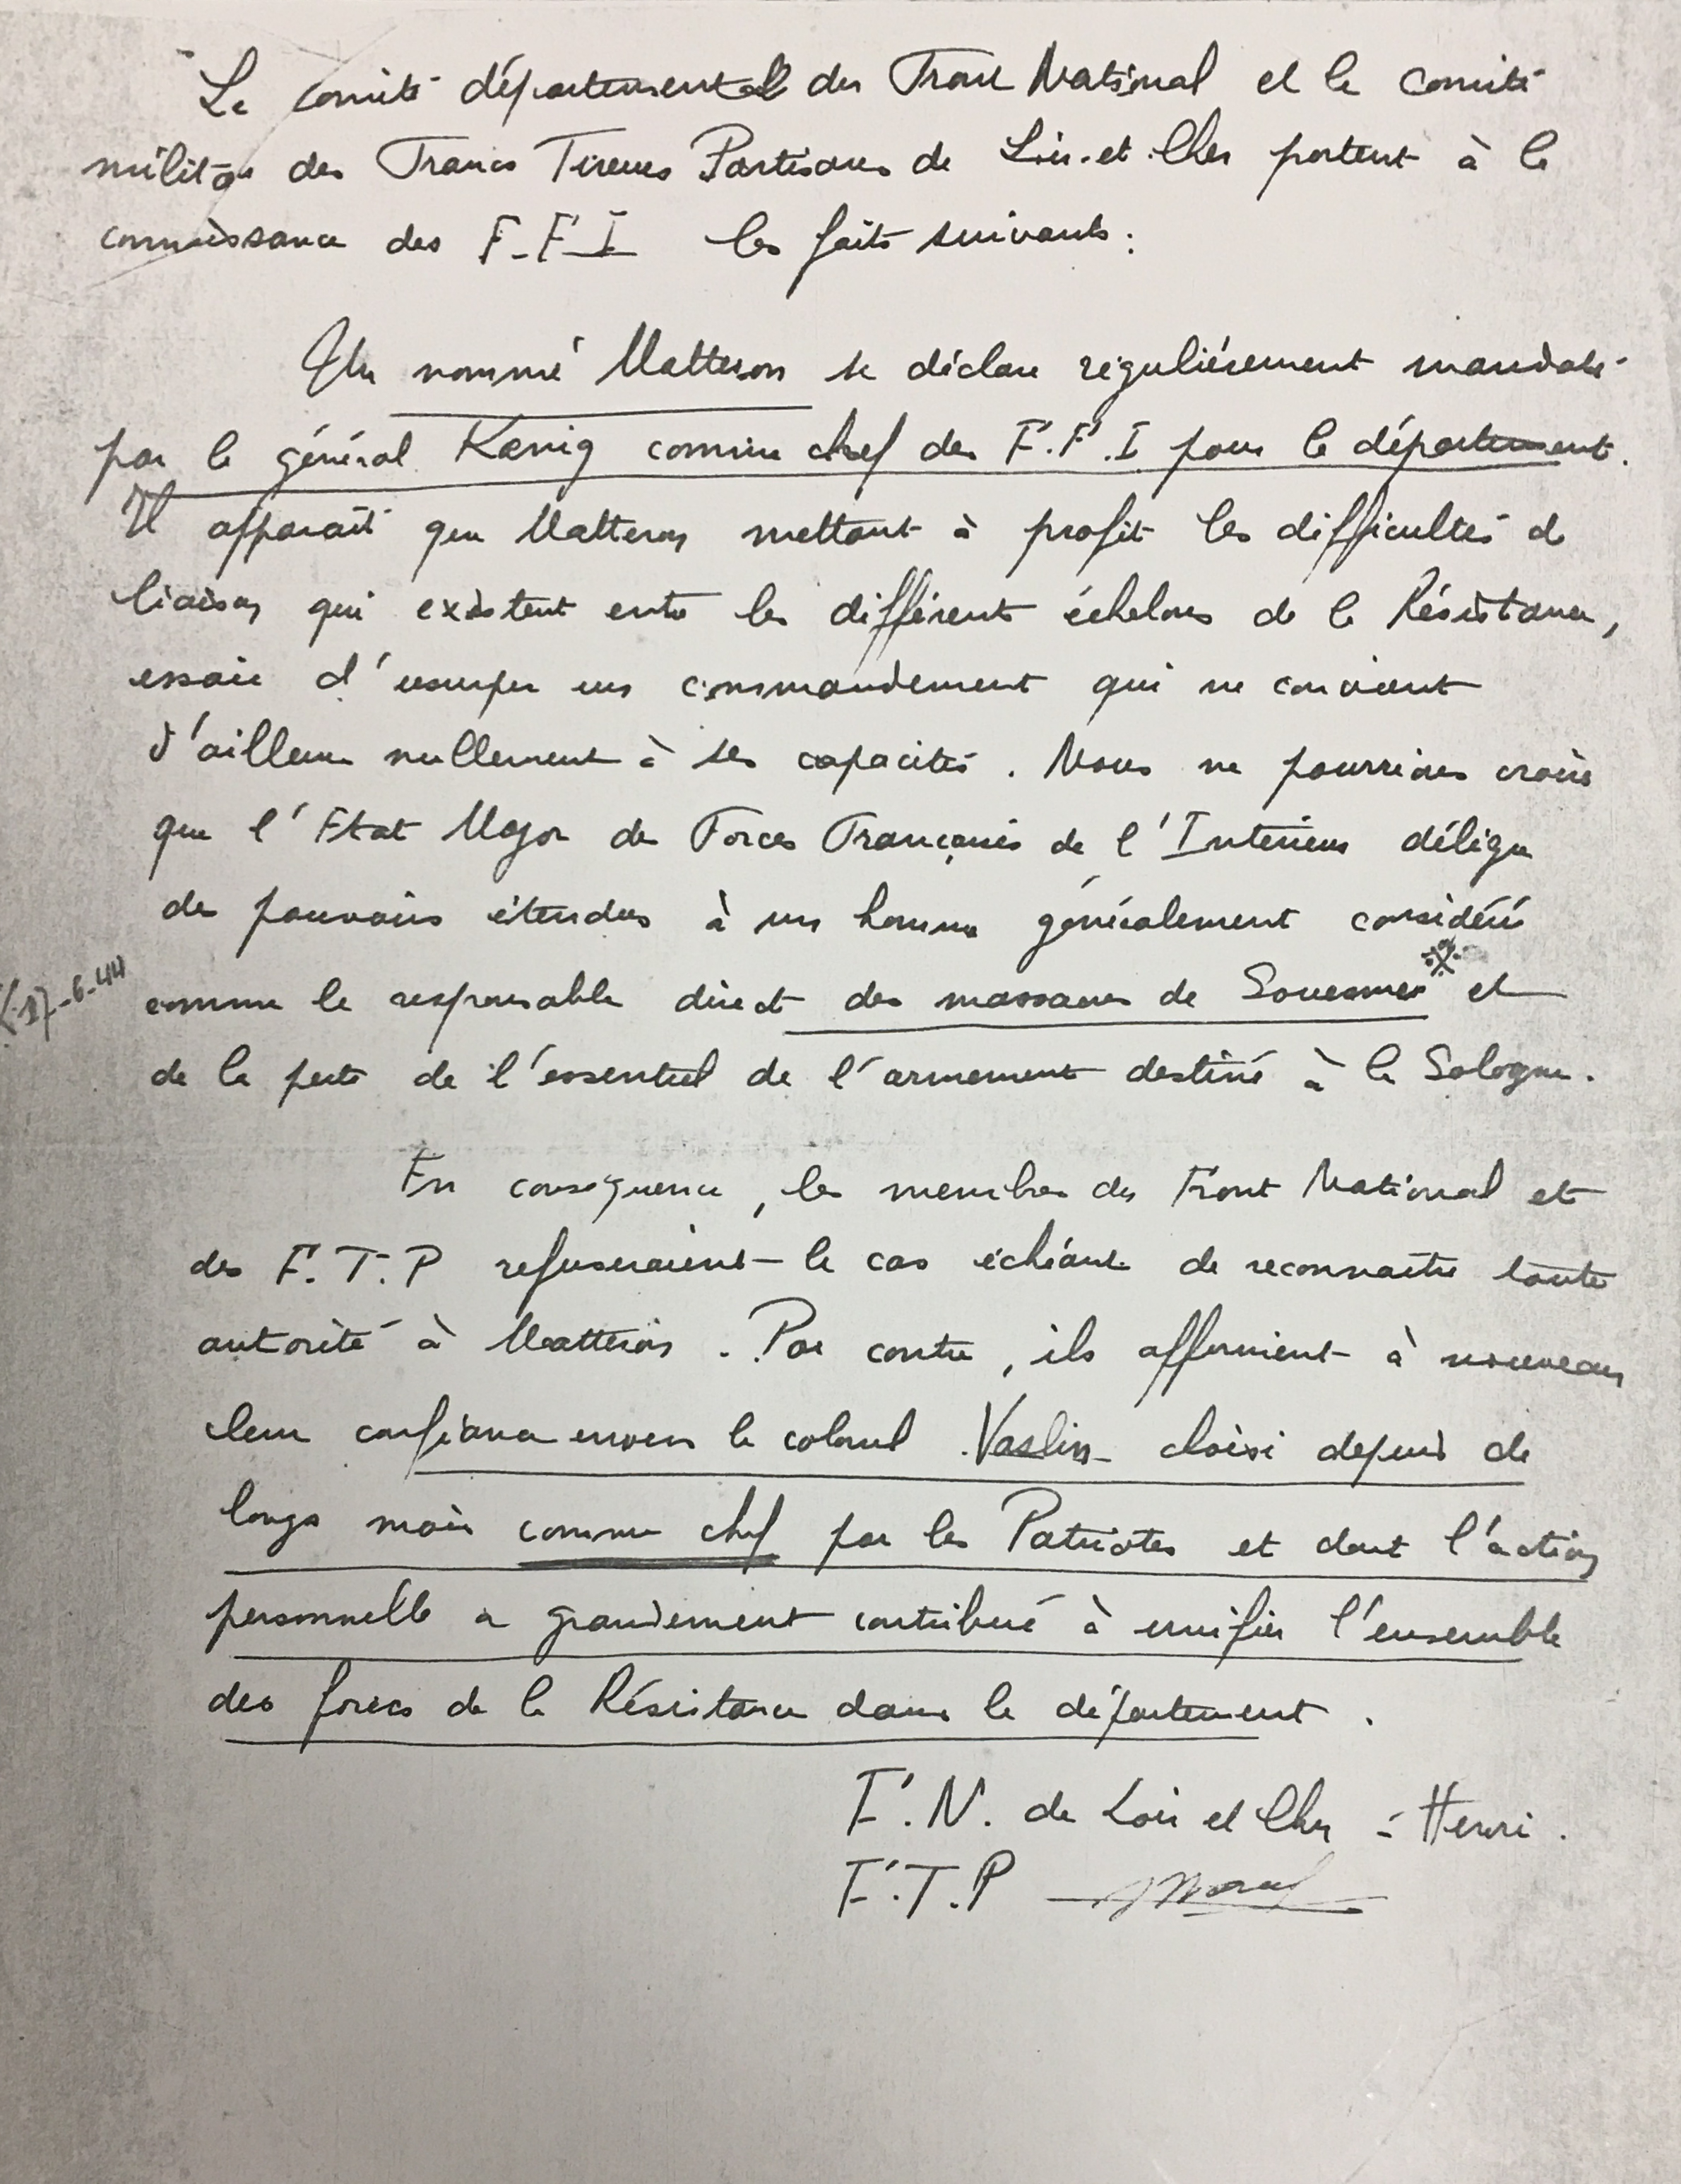 Le comité départemental du Front National et le comité
militaire des Francs Tireurs Partisans de Loir-et-Cher portent à la
connaissance des F.F.I les faits suivants :
Un nommé Matteron se déclare régulièrement mandaté
par le général Kœnig comme chef des F.F.I pour le département.
Il apparaît que Matteron mettant à profit les difficultés de
liaison qui existent entre les différents échelons de la Résistance,
essaie d'usurper un commandement qui ne convient
d'ailleurs nullement à ses capacités. Nous ne pourrions croire
que l'Etat Major des Forces Françaises de l'Intérieur délègue
des pouvoirs étendus à un homme généralement considéré
comme le responsable direct des massacres de Souesmes et
17-6-44
de la perte de l'essentiel de l'armement destiné à la Sologne.
En conséquence, les membres du Front National et
des F.T.P refuseraient le cas échéant de reconnaître toute
autorité à Matteron. Par contre, ils affirment à nouveau
leur confiance envers le colonel Vaslin choisi depuis de
longs mois comme chef par les Patriotes et dont l'action
personnelle a grandement contribué à unifier l'ensemble
des forces de la Résistance dans le département.
F.N. de Loir et Cher - Henri.
F.T.P